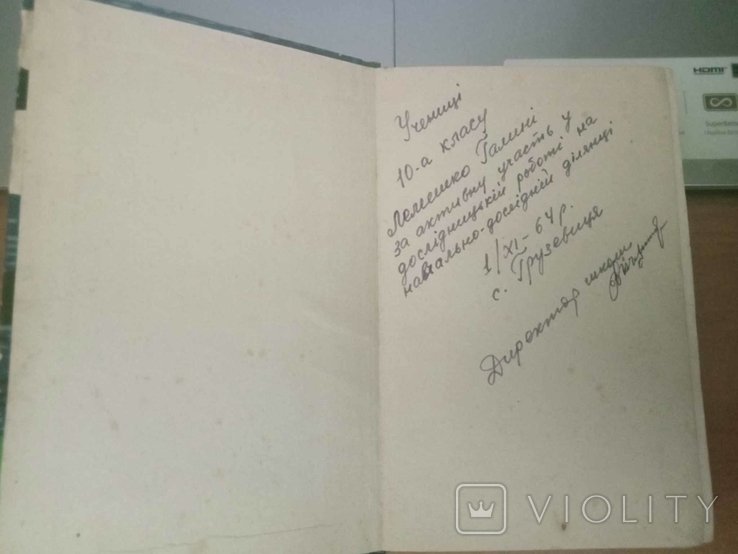 Учениці
10-а класу
Лемешко Галині
за активну участь у
дослідницькій роботі на
навчально-дослідній ділянці
1/XI-64р.
с. Грузевиця
Директор школи
HDMI
VIOLITY